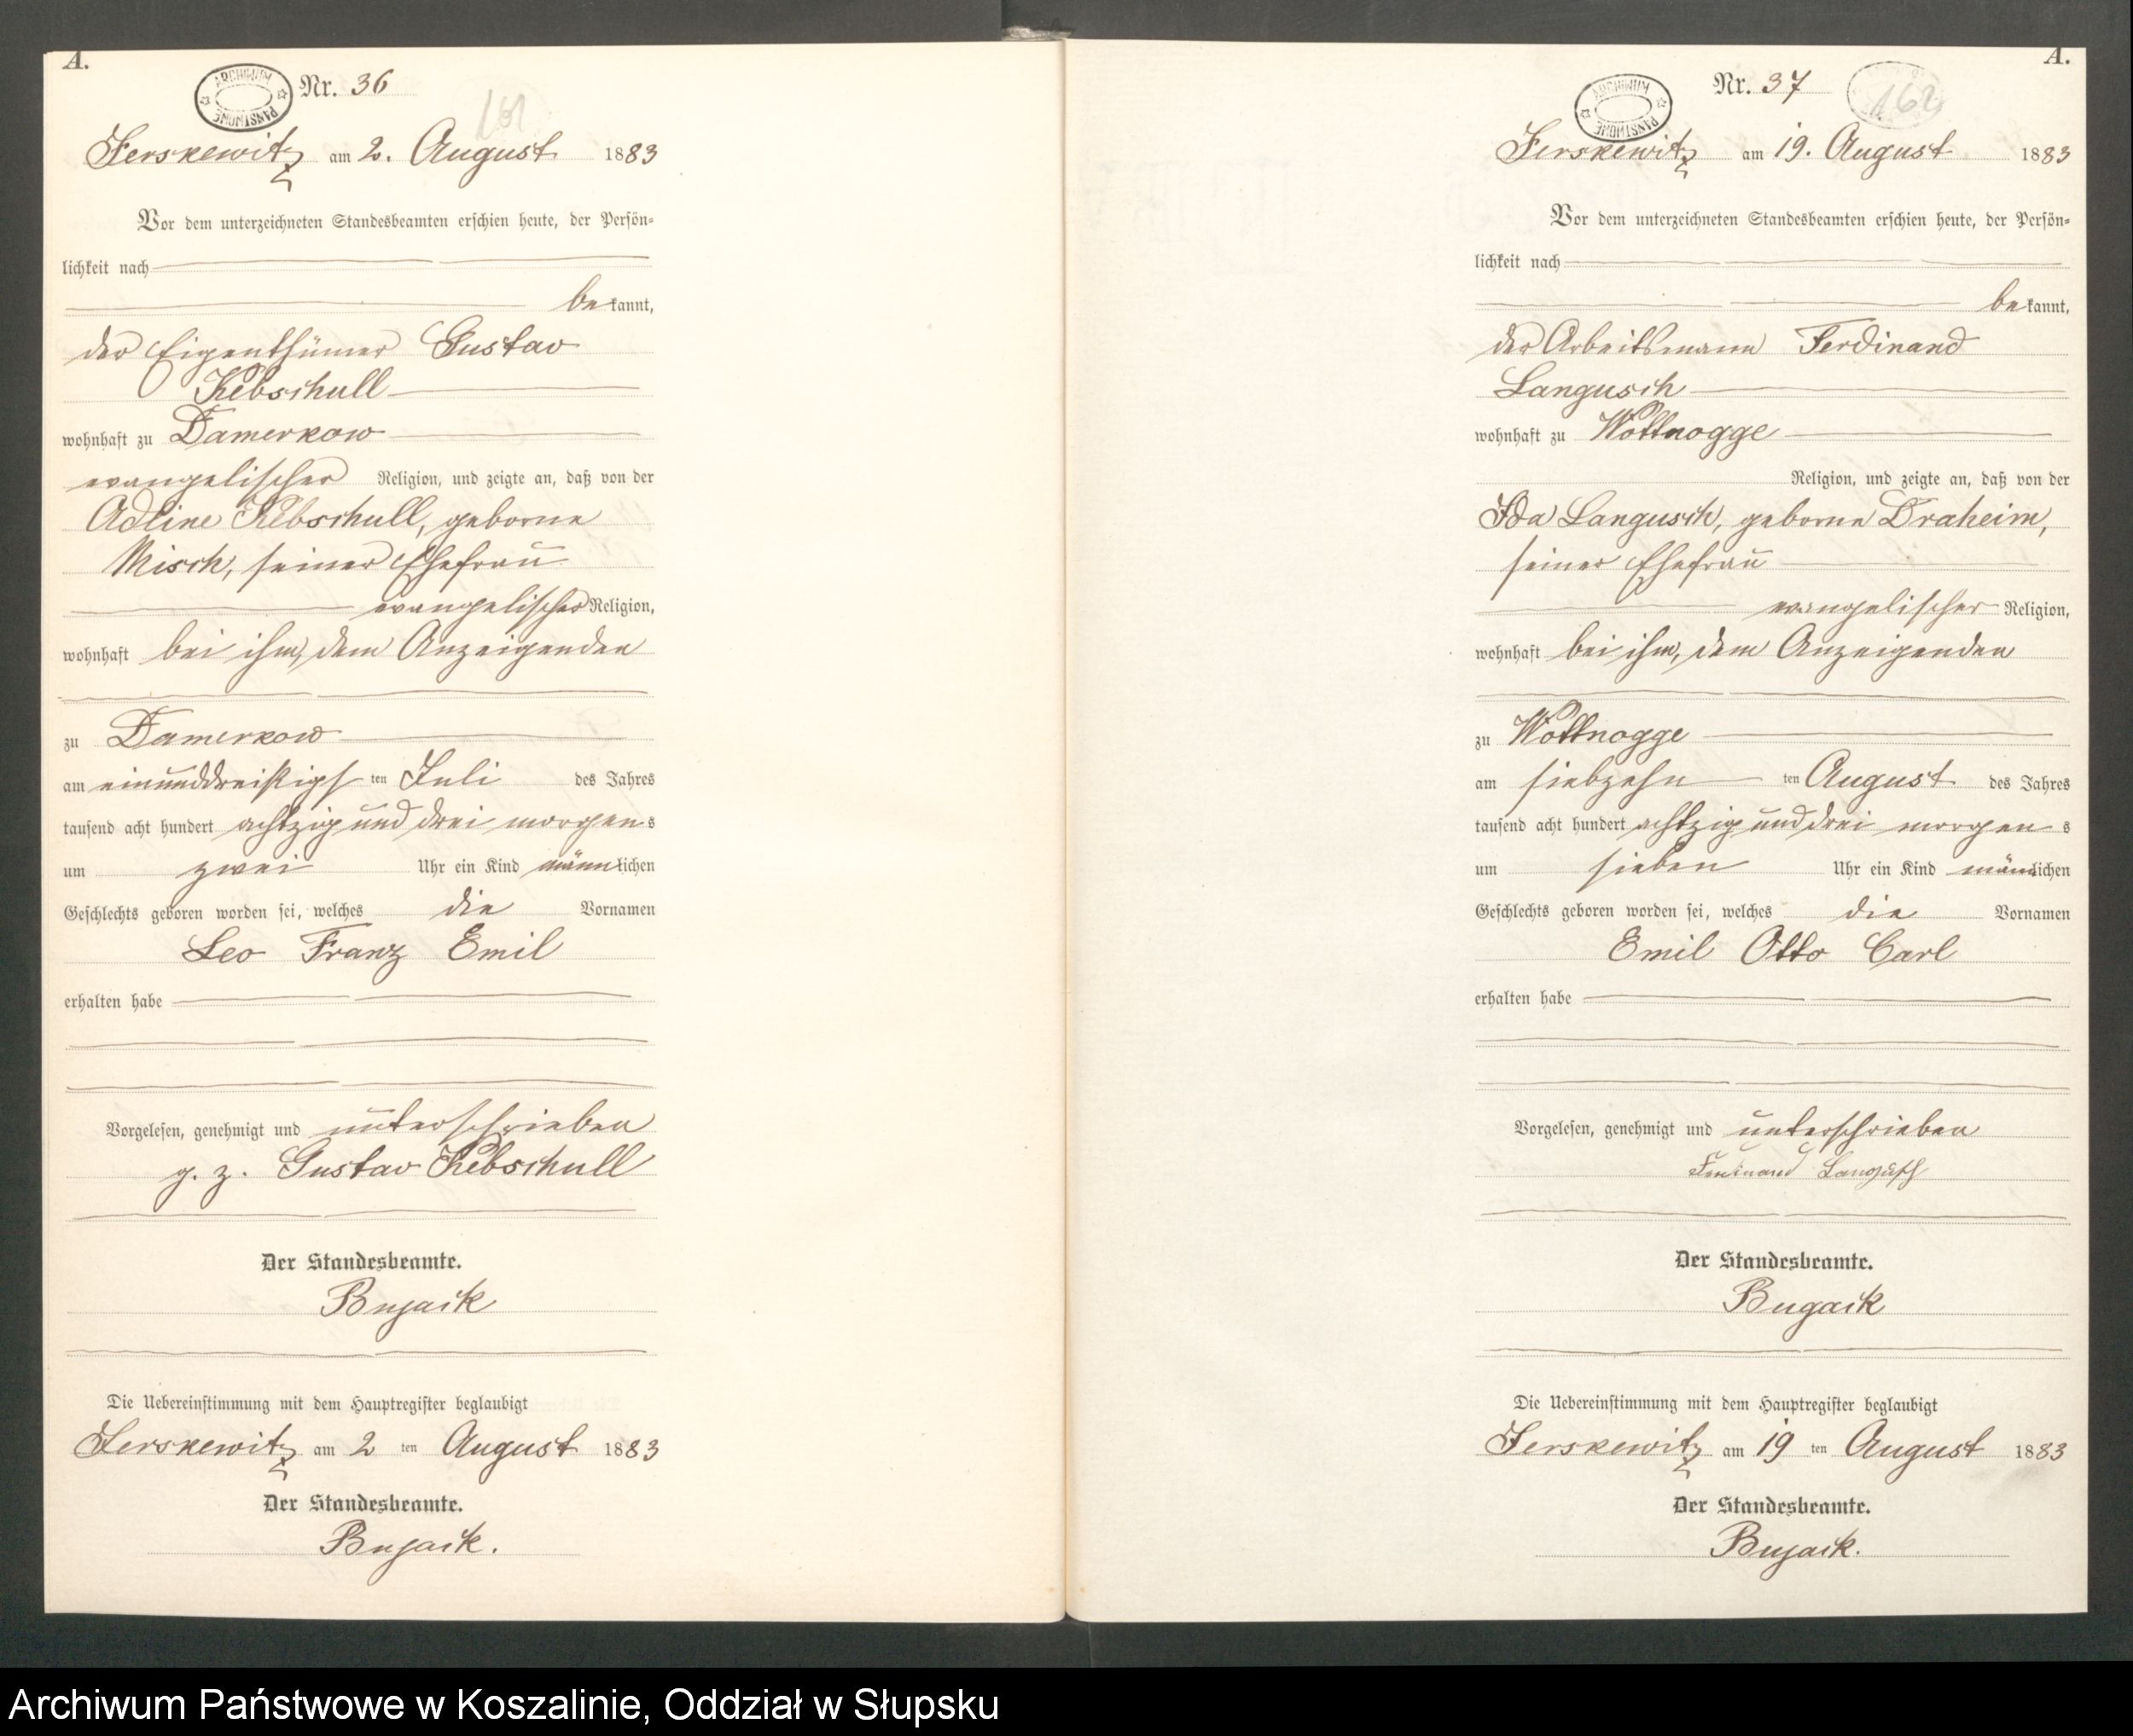 A.
ARCHIWUM PAŃSTWOWE
Nr. 36
161
Jerskewitz am 2. August 1883
Vor dem unterzeichneten Standesbeamten erschien heute, der Persön-
lichkeit nach
bekannt,
der Eigenthümer Gustav
Kebschull
wohnhaft zu Damerkow
evangelischer Religion, und zeigte an, daß von der
Adline Kebschull, geborne
Misch, seiner Ehefrau
evangelischer Religion,
wohnhaft bei ihm, dem Anzeigenden
zu Damerkow
am einunddreißigsten Juli des Jahres
tausend acht hundert achtzig und drei morgens
um zwei Uhr ein Kind männlichen
Geschlechts geboren worden sei, welches die Vornamen
Leo Franz Emil
erhalten habe
Vorgelesen, genehmigt und unterschrieben
g. z. Gustav Kebschull
Der Standesbeamte.
Bujack
Die Uebereinstimmung mit dem Hauptregister beglaubigt
Jerskewitz am 2 ten August 1883
Der Standesbeamte.
Bujack.
A.
ARCHIWUM PAŃSTWOWE
Nr. 37
162
Jerskewitz am 19. August 1883
Vor dem unterzeichneten Standesbeamten erschien heute, der Persön-
lichkeit nach
bekannt,
der Arbeitsmann Ferdinand
Langusch
wohnhaft zu Wottnogge
Religion, und zeigte an, daß von der
Ida Langusch, geborne Draheim,
seiner Ehefrau
evangelischer Religion,
wohnhaft bei ihm, dem Anzeigenden
zu Wottnogge
am siebzehn ten August des Jahres
tausend acht hundert achtzig und drei morgens
um sieben Uhr ein Kind männlichen
Geschlechts geboren worden sei, welches die Vornamen
Emil Otto Carl
erhalten habe
Vorgelesen, genehmigt und unterschrieben
Ferdinand Langusch
Der Standesbeamte.
Bujack
Die Uebereinstimmung mit dem Hauptregister beglaubigt
Jerskewitz am 19 ten August 1883
Der Standesbeamte.
Bujack.
Archiwum Państwowe w Koszalinie, Oddział w Słupsku